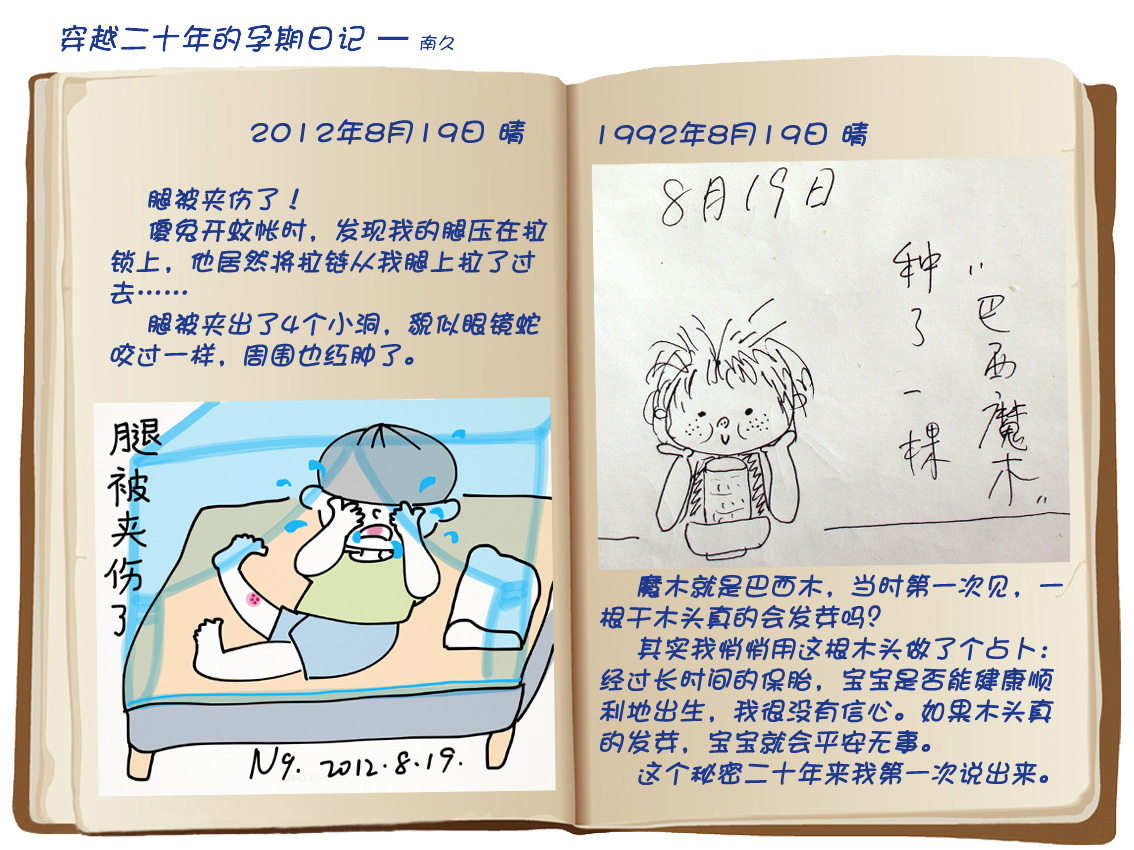 穿越二十年的孕期日记 — 南久
2012年8月19日 晴
腿被夹伤了！
傻兔开蚊帐时，发现我的腿压在拉
锁上，他居然将拉链从我腿上拉了过
去……
腿被夹出了4个小洞，貌似眼镜蛇
咬过一样，周围也红肿了。
腿被夹伤了
N9. 2012.8.19.
1992年8月19日 晴
8月19日
种了一棵
"巴西魔木"
魔木就是巴西木，当时第一次见，一
根干木头真的会发芽吗？
其实我悄悄用这根木头做了个占卜：
经过长时间的保胎，宝宝是否能健康顺
利地出生，我很没有信心。如果木头真
的发芽，宝宝就会平安无事。
这个秘密二十年来我第一次说出来。